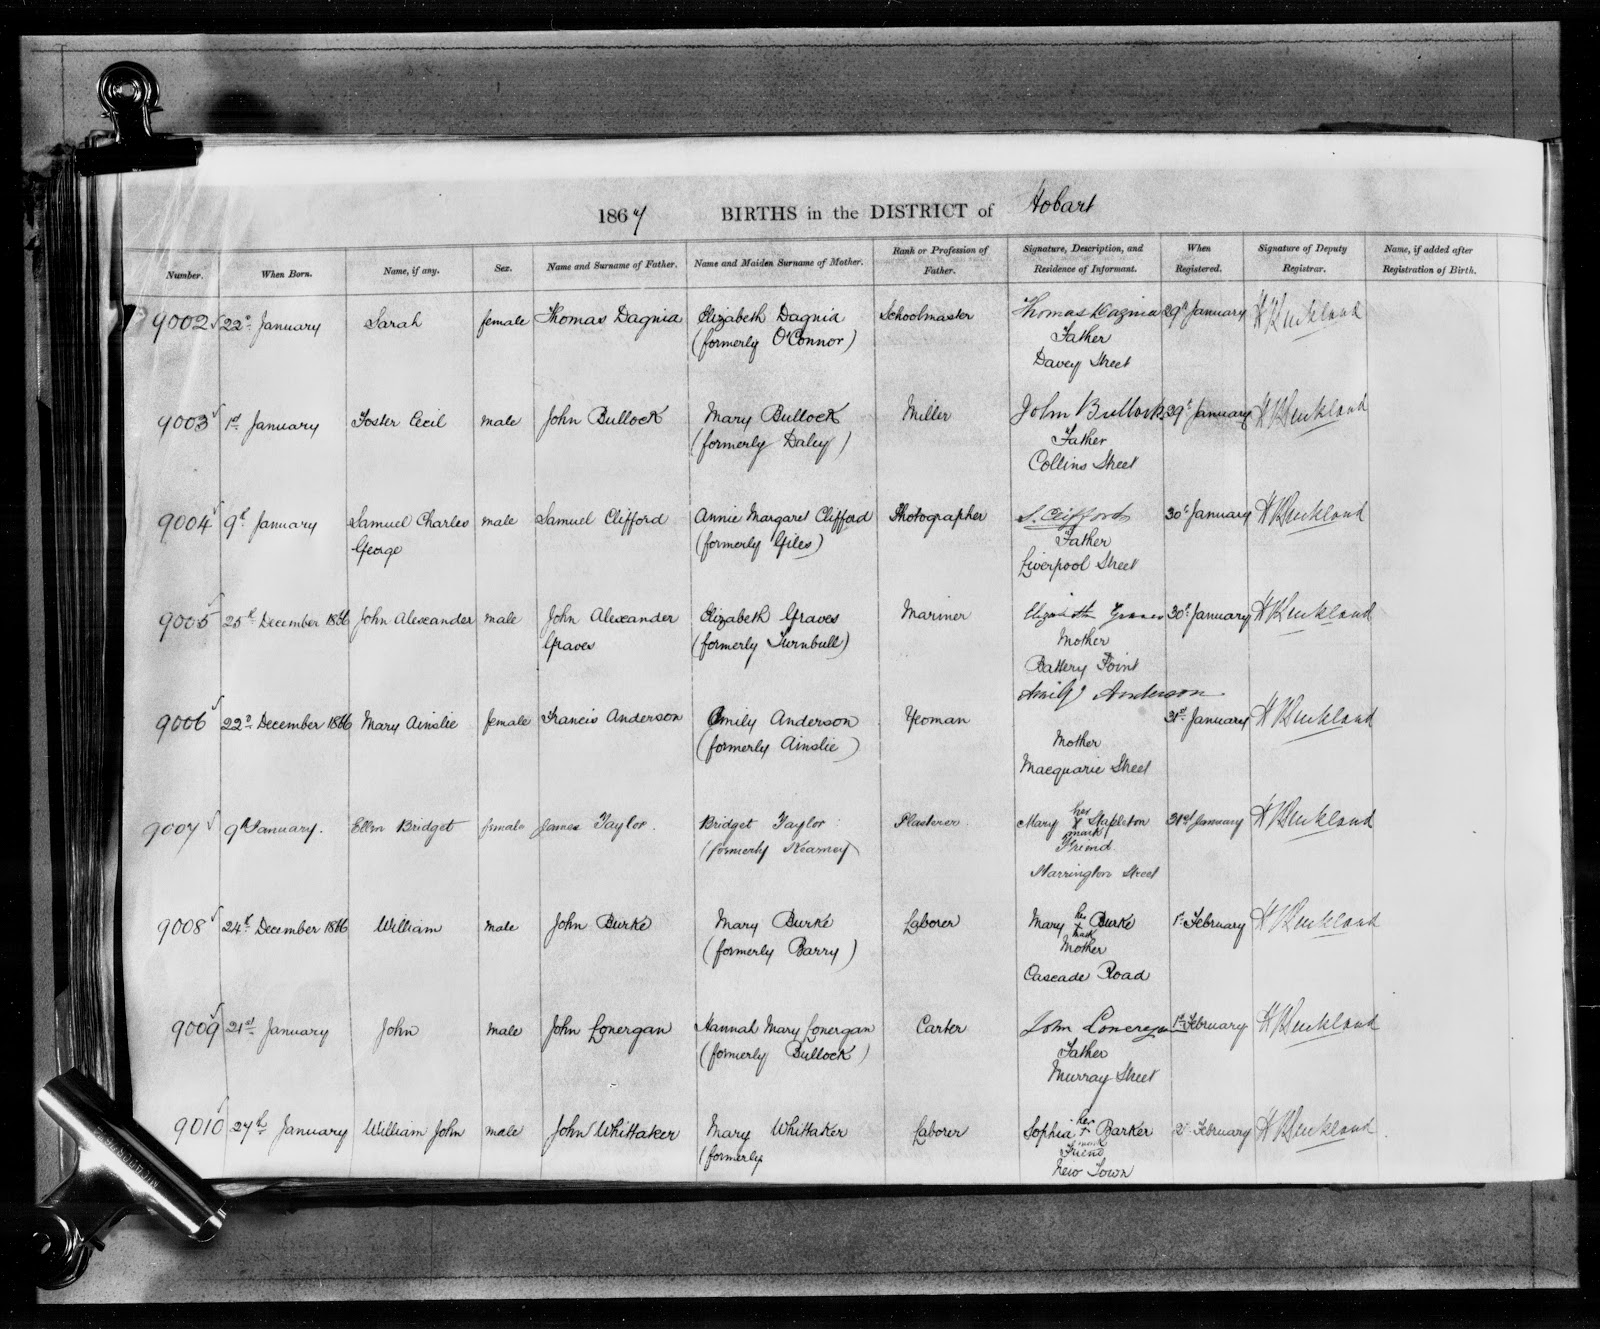 1867 BIRTHS in the DISTRICT of Hobart
Number. When Born. Name, if any. Sex. Name and Surname of Father. Name and Maiden Surname of Mother. Rank or Profession of Father. Signature, Description, and Residence of Informant. When Registered. Signature of Deputy Registrar. Name, if added after Registration of Birth.
9002 22d January Sarah female Thomas Dagnia Elizabeth Dagnia Schoolmaster Thomas Dagnia 29th January
(formerly O'Connor) Father
Davey Street
9003 1st January Foster Cecil male John Bullock Mary Bullock Miller John Bullock 29th January
(formerly Daley) Father
Collins Street
9004 9th January Samuel Charles male Samuel Clifford Annie Margaret Clifford Photographer S. Clifford 30th January
George (formerly Giles) Father
Liverpool Street
9005 25th December 1866 John Alexander male John Alexander Elizabeth Graves Mariner Elizabeth Graves 30th January
Graves (formerly Turnbull) Mother
Battery Point
Emily Anderson
9006 22d December 1866 Mary Ainslie female Francis Anderson Emily Anderson Yeoman 31st January
(formerly Ainslie) Mother
Macquarie Street
9007 9th January. Ellen Bridget female James Taylor. Bridget Taylor Plasterer. Mary her x mark Stapleton 31st January
(formerly Kearney) Friend
Harrington Street
9008 24th December 1866 William male John Burke Mary Burke Laborer Mary her + mark Burke 1st February
(formerly Barry) Mother
Cascade Road
9009 21st January John male John Lonergan Hannah Mary Lonergan Carter John Lonergan 1st February
(formerly Bullock) Father
Murray Street
9010 27th January William John male John Whittaker Mary Whittaker Laborer Sophia her + mark Barker 2d February
(formerly Friend
New Town